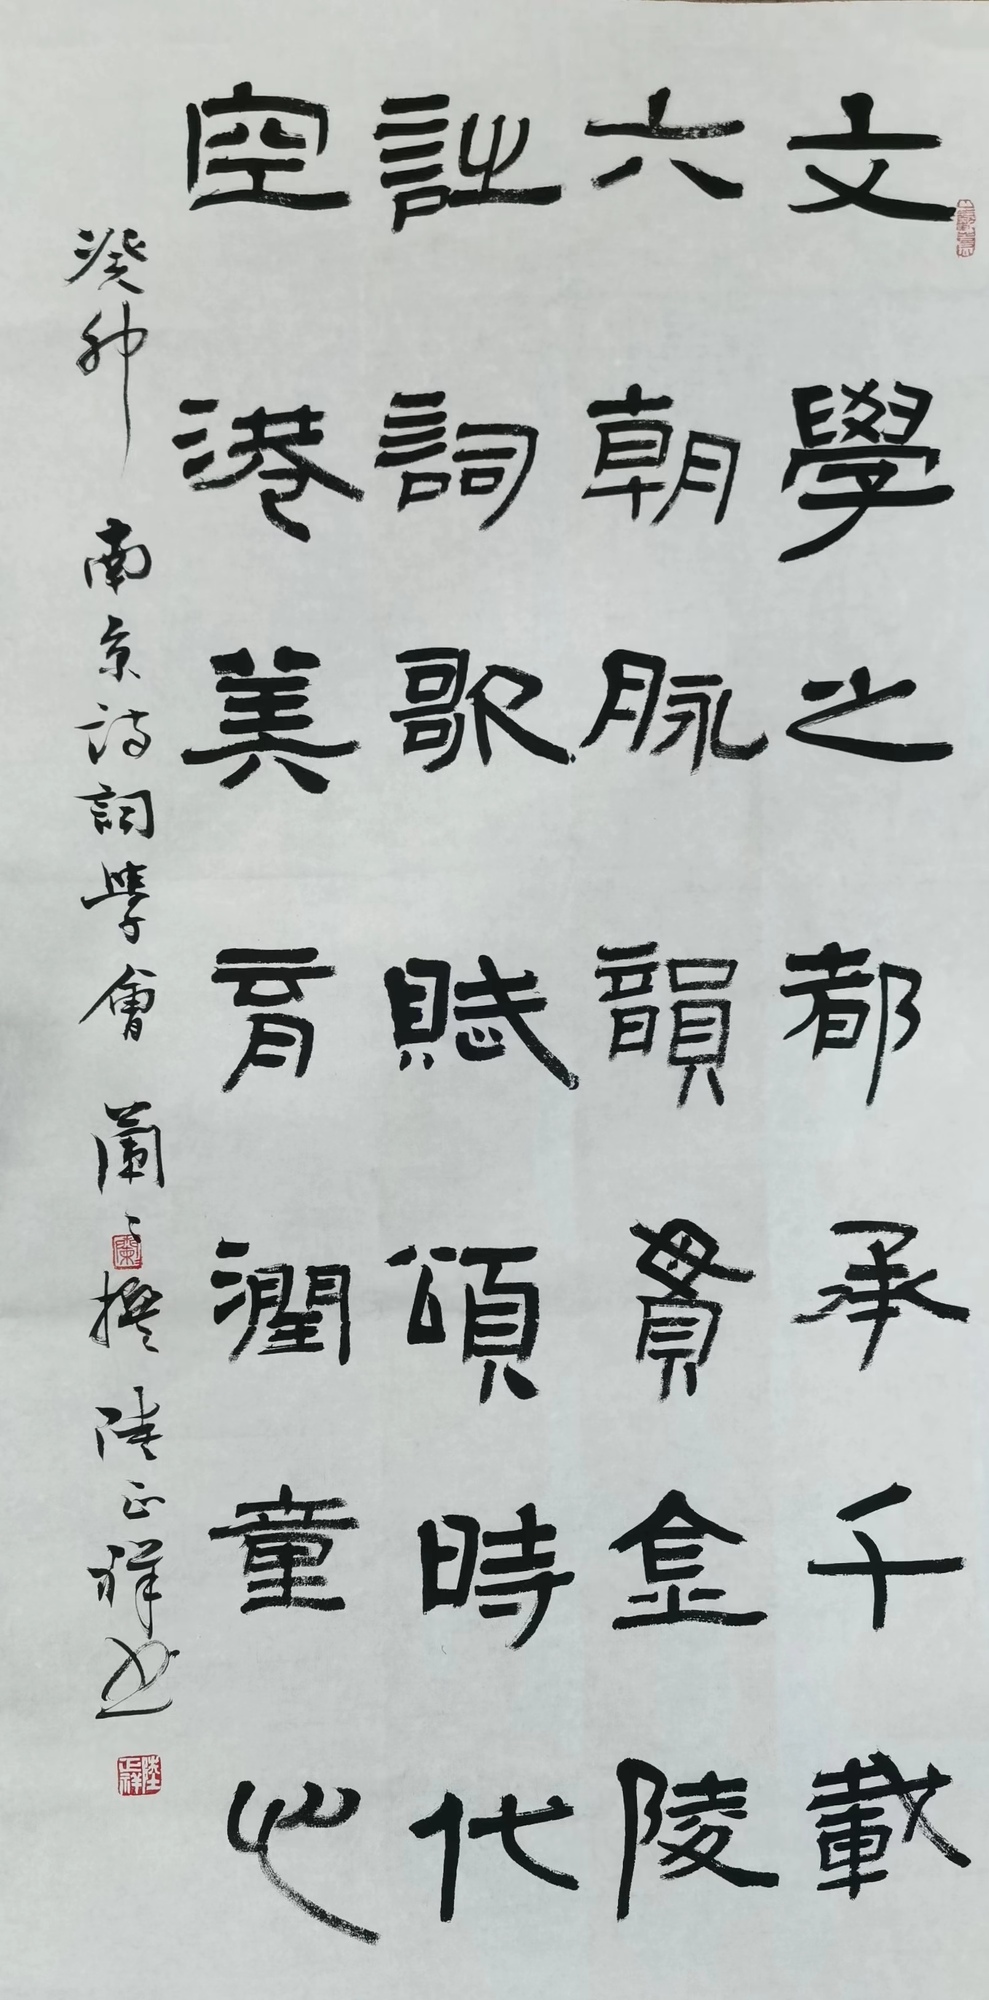 文學之都承千載
六朝脉韻貫金陵
詩詞歌賦頌時代
空港美育潤童心
癸卯 南京诗詞學會 蘭〻撰 陸正祥书
陸正祥